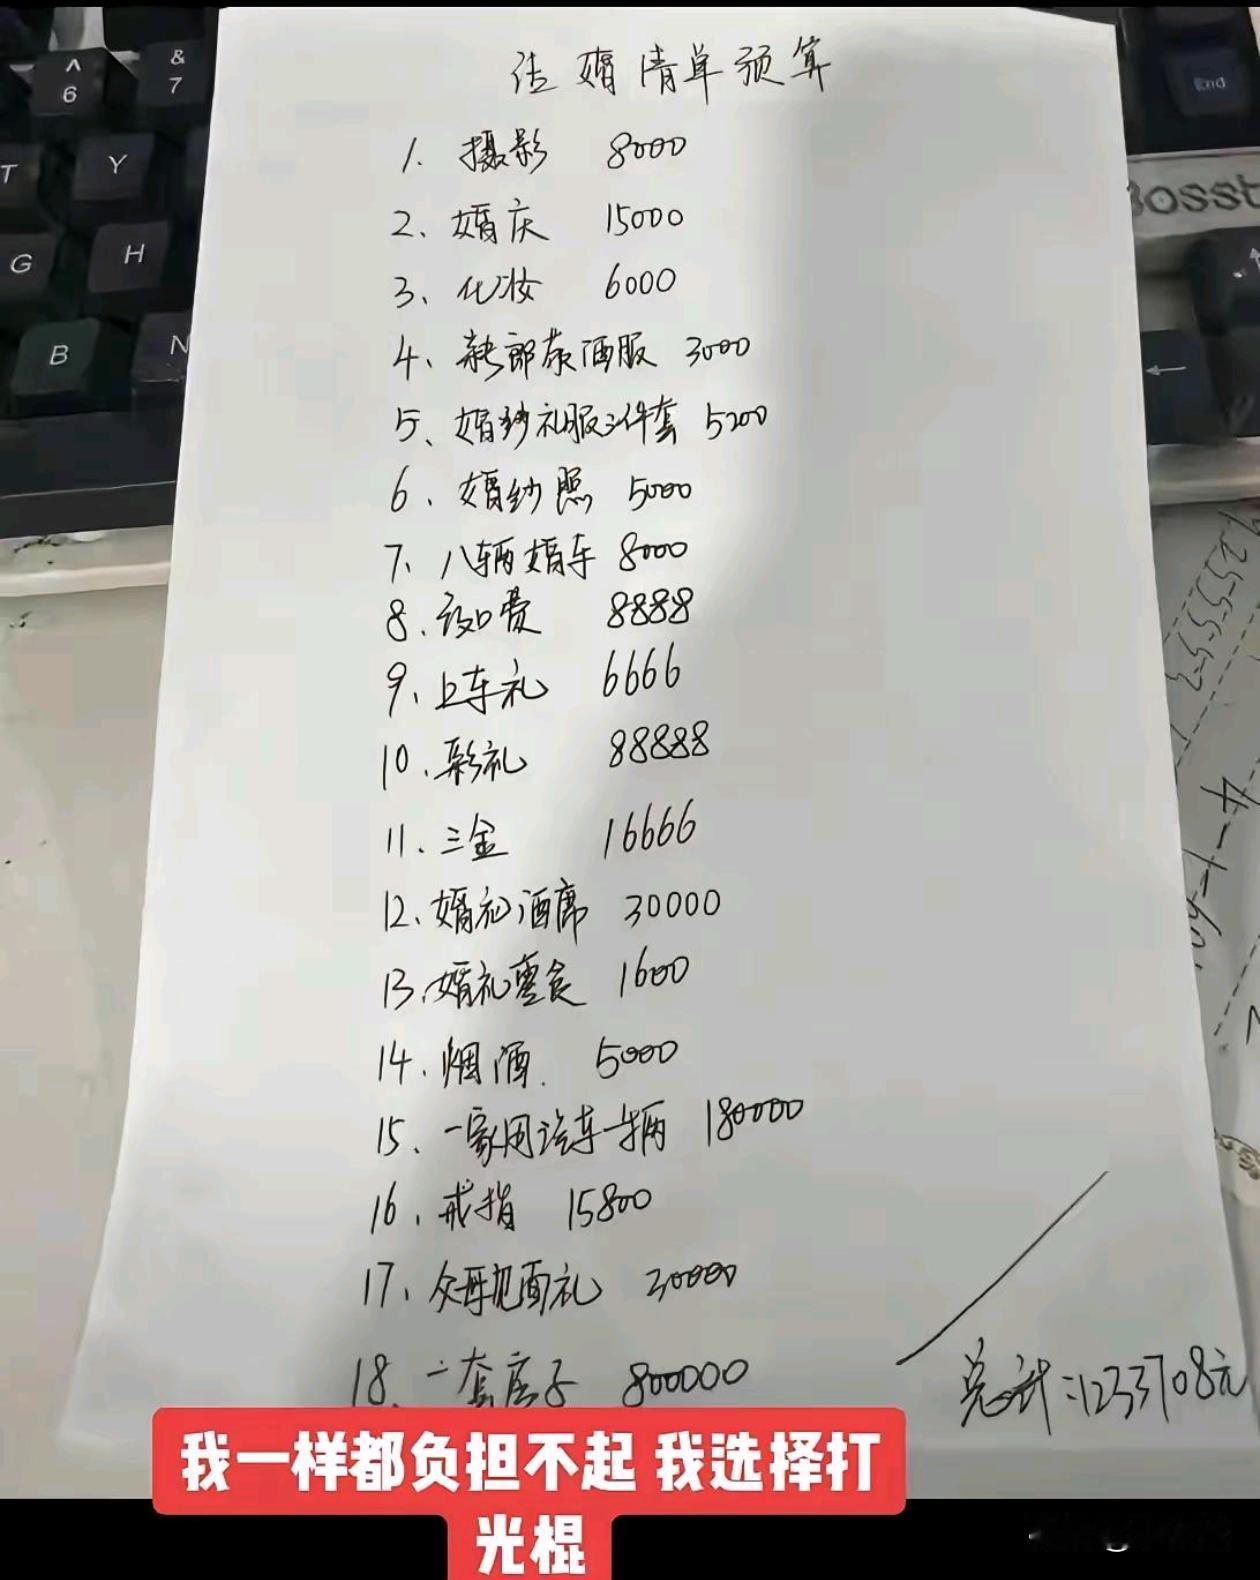 结婚清单预算
1. 摄影 8000
2、婚庆 15000
3、化妆 6000
4、新郎敬酒服 3000
5、婚纱礼服三件套 5200
6、婚纱照 5000
7、八辆婚车 8000
8、改口费 8888
9、上车礼 6666
10、彩礼 88888
11、三金 16666
12、婚礼酒席 30000
13、婚礼零食 1600
14、烟酒 5000
15、一家用汽车一辆 180000
16、戒指 15800
17、父母见面礼 30000
18、一套房子 800000
总计:1233708元
我一样都负担不起 我选择打
光棍
^
6
&
7
T
Y
G
H
B
N
End
osst
←